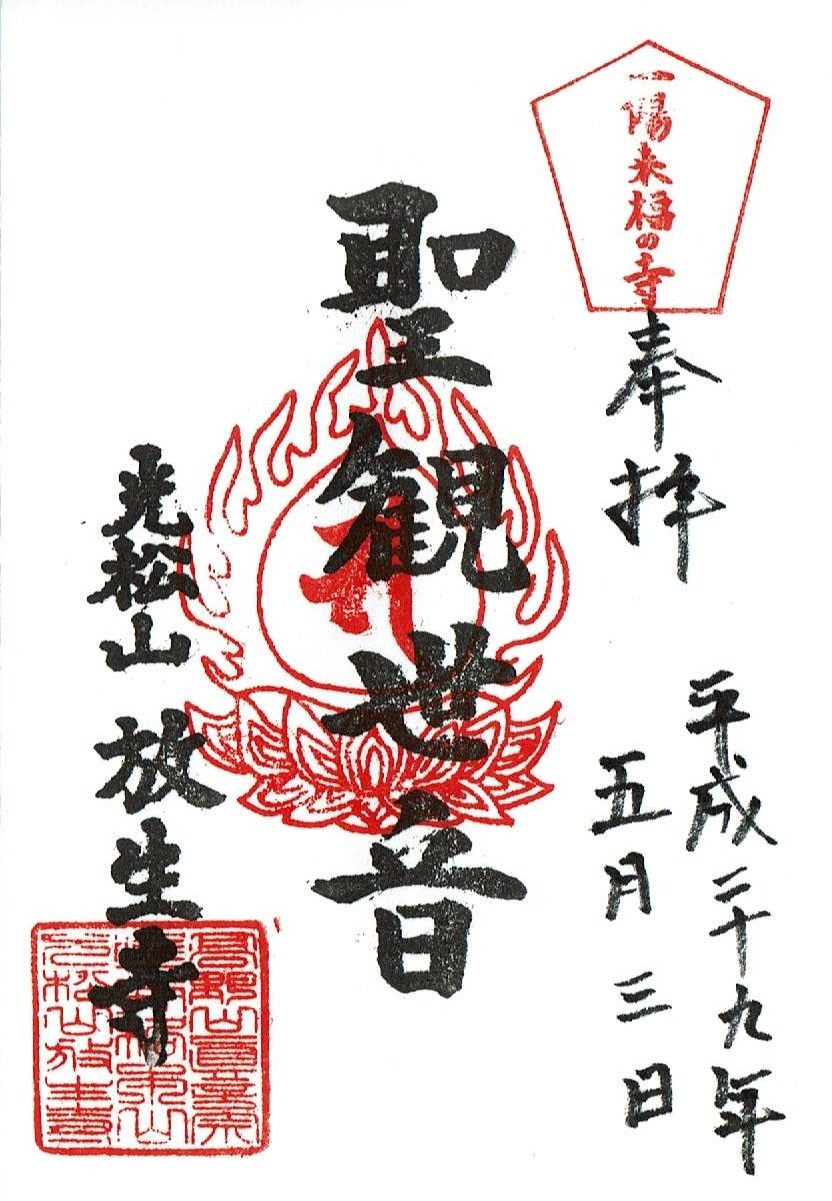 一陽来福の寺
奉拝
平成二十九年
五月三日
聖観世音
光松山 放生寺